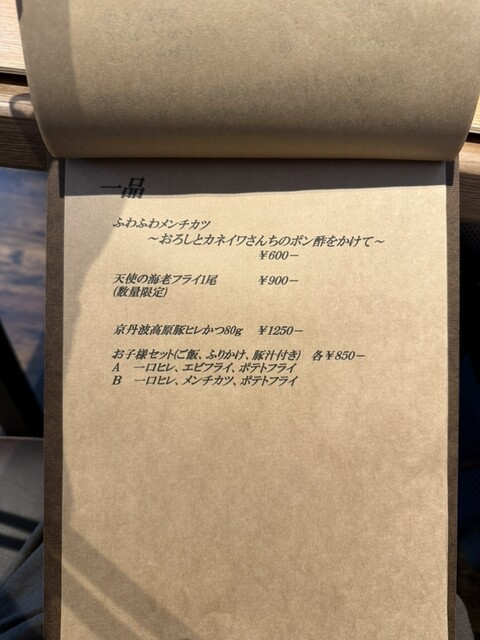 一品
ふわふわメンチカツ
～おろしとカネイワさんちのポン酢をかけて～
￥600－
天使の海老フライ1尾 ￥900－
(数量限定)
京丹波高原豚ヒレかつ80g ￥1250－
お子様セット(ご飯、ふりかけ、豚汁付き) 各￥850－
A 一口ヒレ、エビフライ、ポテトフライ
B 一口ヒレ、メンチカツ、ポテトフライ